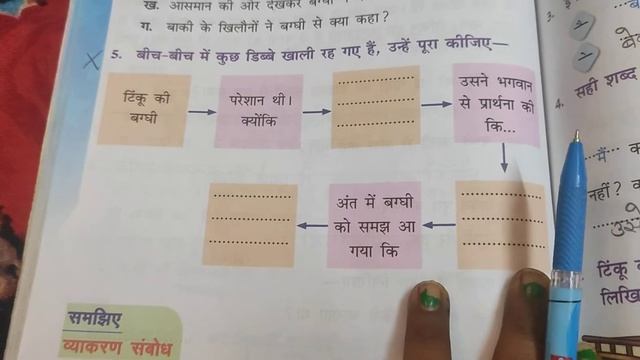 ख. आसमान की ओर देखकर बग्घी
ग. बाकी के खिलौनों ने बग्घी से क्या कहा?
5. बीच-बीच में कुछ डिब्बे खाली रह गए हैं, उन्हें पूरा कीजिए—
टिंकू की
बग्घी
परेशान थी।
क्योंकि
उसने भगवान
से प्रार्थना की
कि...
अंत में बग्घी
को समझ आ
गया कि
समझिए
व्याकरण संबोध
3.
4. सही शब्द
मैं
नहीं?
टिंकू
लिखि